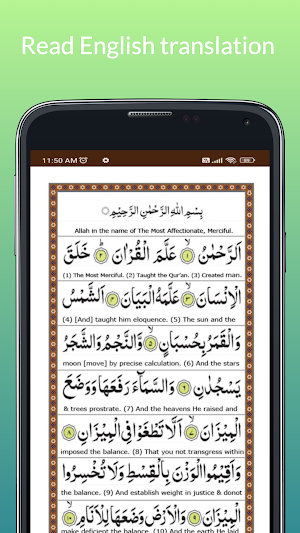 Read English translation
11:50 AM
بِسْمِ اللهِ الرَّحْمٰنِ الرَّحِيْمِ
Allah in the name of The Most Affectionate, Merciful.
اَلرَّحْمٰنُ ۙ﴿۱﴾ عَلَّمَ الْقُرْاٰنَ ؕ﴿۲﴾ خَلَقَ
(1) The Most Merciful. (2) Taught the Qur'an. (3) Created man.
الْاِنْسَانَ ۙ﴿۳﴾ عَلَّمَهُ الْبَيَانَ ﴿۴﴾ اَلشَّمْسُ
(4) [And] taught him eloquence. (5) The sun and the
وَالْقَمَرُ بِحُسْبَانٍ ﴿۵﴾ وَّالنَّجْمُ وَالشَّجَرُ
moon [move] by precise calculation. (6) And the stars
يَسْجُدٰنِ ﴿۶﴾ وَالسَّمَآءَ رَفَعَهَا وَوَضَعَ
& trees prostrate. (7) And the heavens He raised and
الْمِيْزَانَ ۙ﴿۷﴾ اَلَّا تَطْغَوْا فِى الْمِيْزَانِ ﴿۸﴾
imposed the balance. (8) That you not transgress within
وَاَقِيْمُوا الْوَزْنَ بِالْقِسْطِ وَلَا تُخْسِرُوا
the balance. (9) And establish weight in justice & donot
الْمِيْزَانَ ﴿۹﴾ وَالْاَرْضَ وَضَعَهَا لِلْاَنَامِ ۙ﴿۱۰﴾
make deficient the balance. (10) And the earth He laid